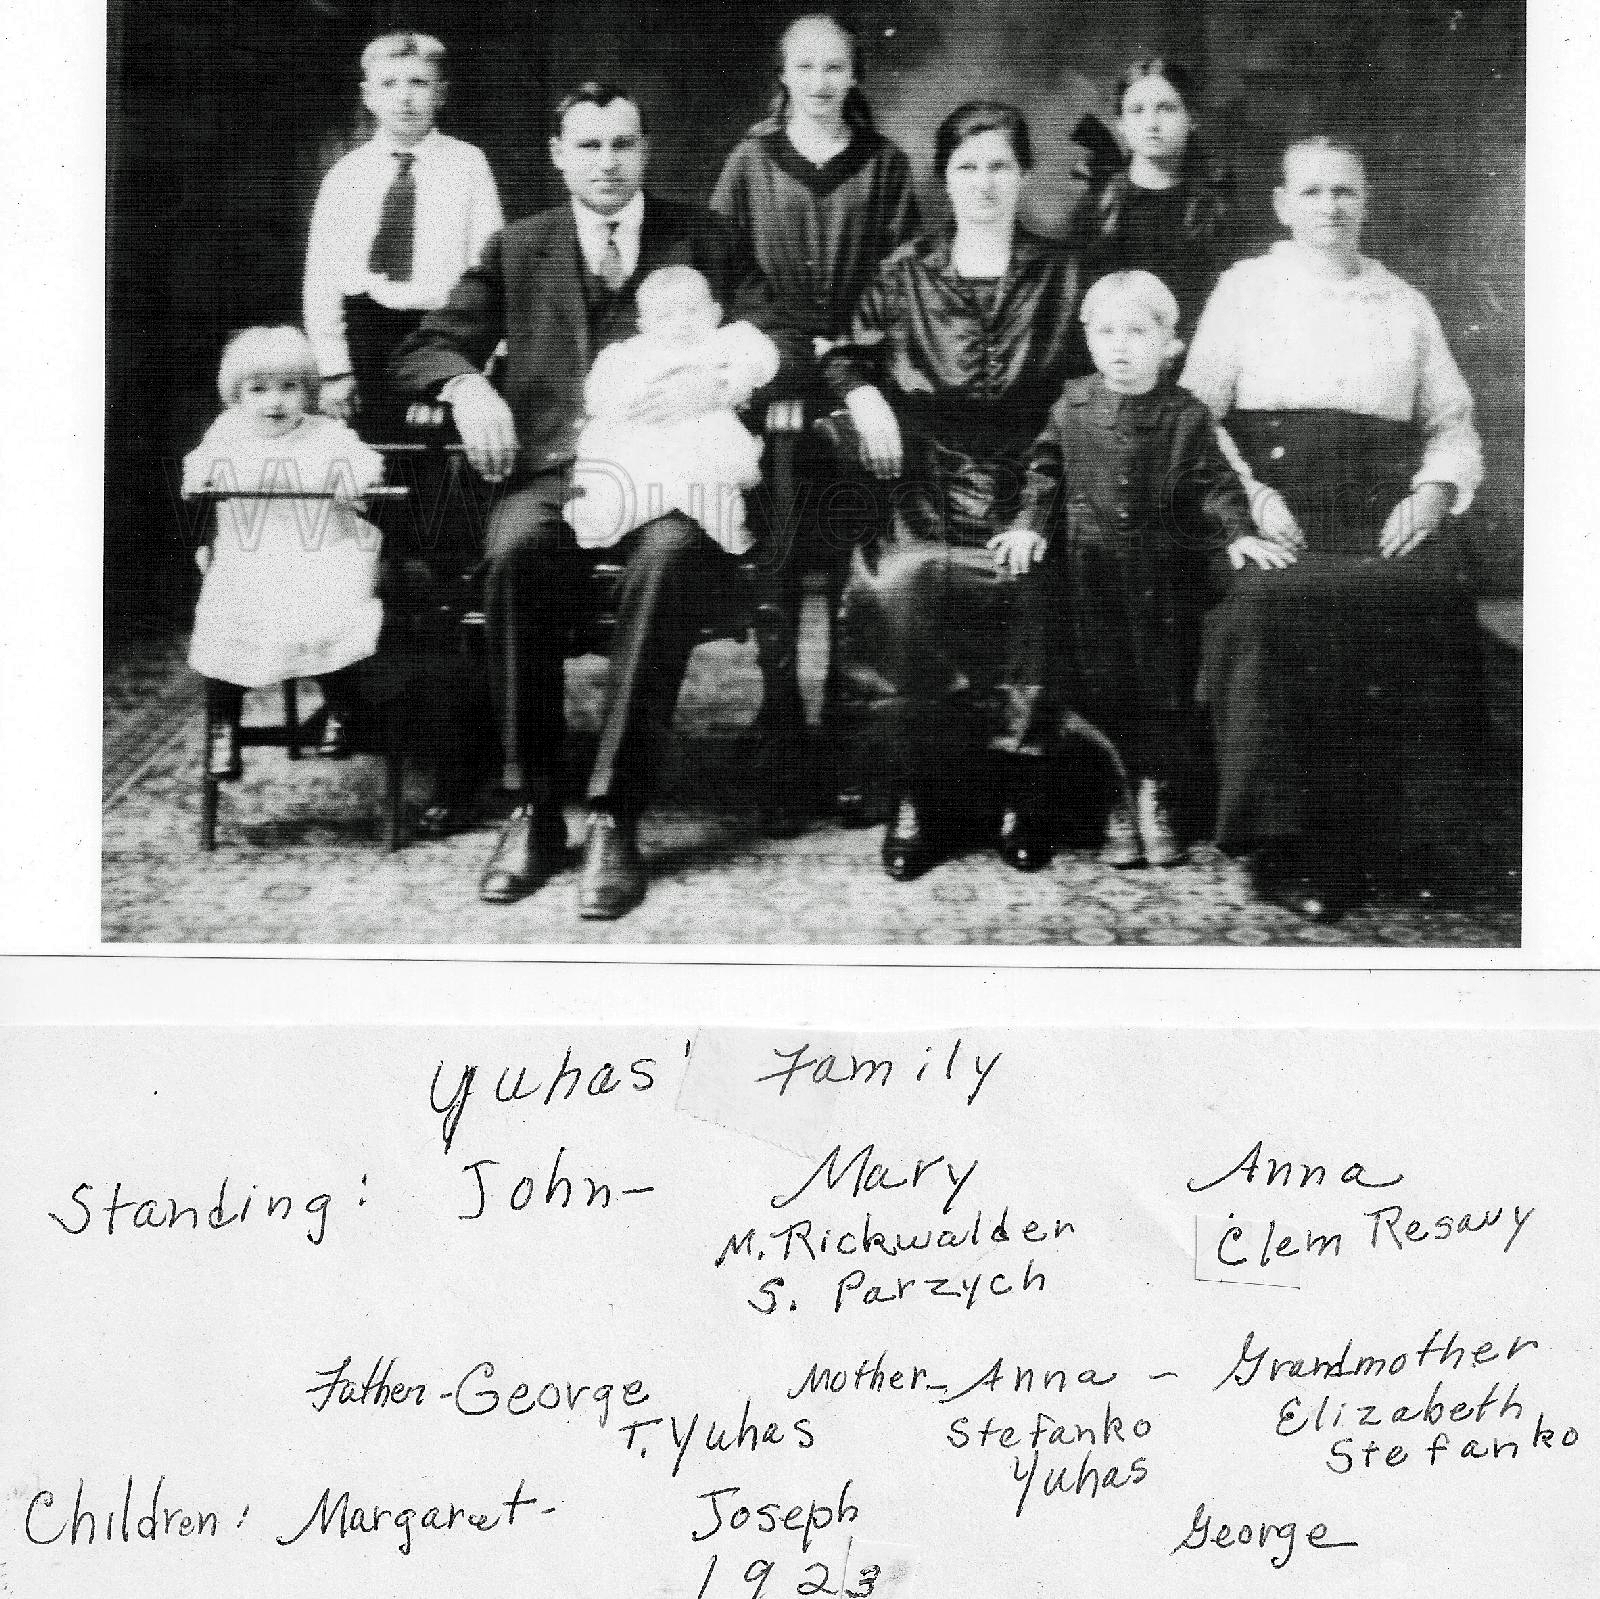 www.DuryeaPA.com
Yuhas' Family
Standing: John- Mary Anna
M. Rickwalder Clem Resavy
S. Parzych
Father-George Mother-Anna - Grandmother
T. Yuhas Stefanko Elizabeth
Yuhas Stefanko
Children: Margaret- Joseph George
1923